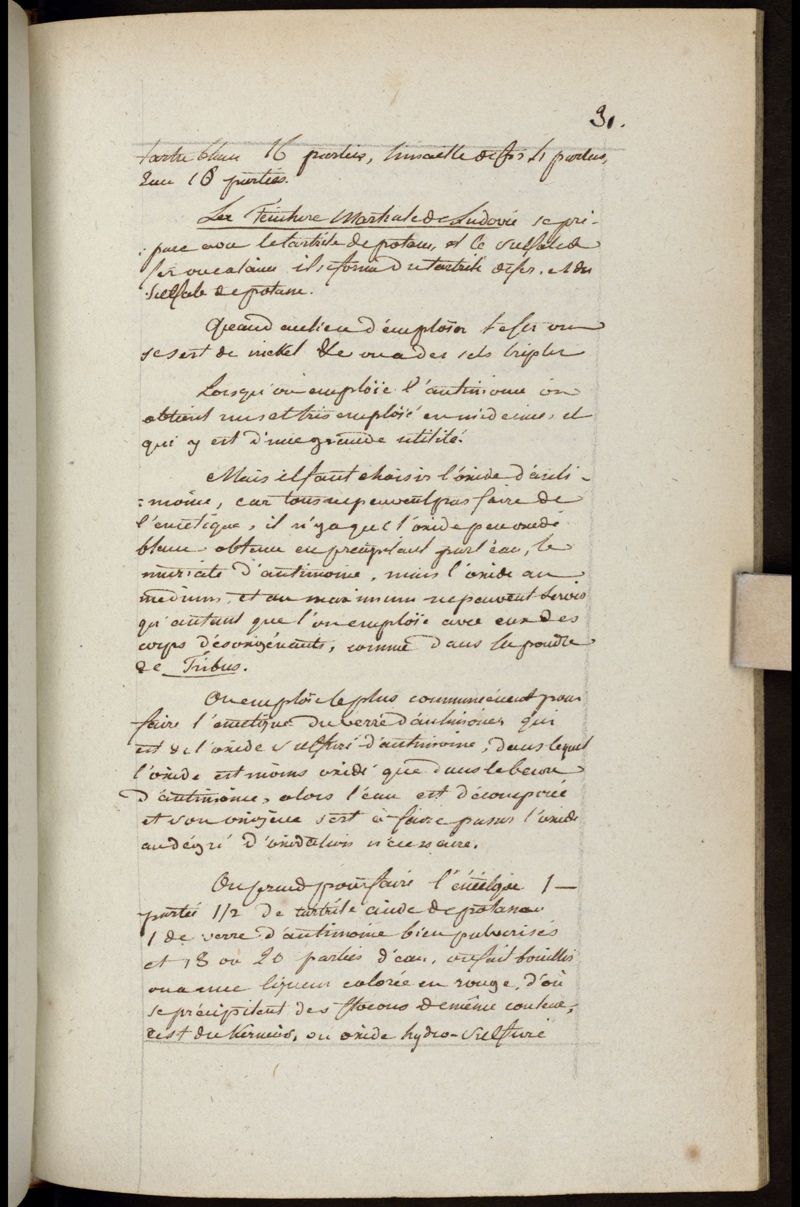 31.
tartre blanc 16 parties, limaille de fer 4 parties,
Eau 18 parties.
La Teinture Martiale de Ludovic se pré-
pare avec le tartrite de potasse, et le sulfate de
fer ou calciné il se forme du tartrite de fer. et du
sulfate de potasse.
Quand au lieu d'emploïer le fer on
se sert de nickel &c on a des sels triples
Lorsqu'on emploïe l'antimoine on
obtient un sel très emploïé en médecine, et
qui y est d'une grande utilité.
Mais il faut choisir l'oxide d'anti-
=moine, car tous ne peuvent pas faire de
l'emétique, il n'y a que l'oxide peu oxidé
blanc obtenu en précipitant par l'eau, le
muriate d'antimoine, mais l'oxide au
medium, et au maximum ne peuvent servir
qu'autant que l'on emploïe avec eux des
corps désoxigénants, comme dans la poudre
de Tribus.
On emploïe le plus communément pour
faire l'emétique du verre d'antimoine, qui
est de l'oxide sulfuré d'antimoine, dans lequel
l'oxide est moins oxidé que dans le beure
d'antimoine, alors l'eau est décomposée
et son oxigène sert à faire passer l'oxide
au dégré d'oxidation nécessaire.
On prend pour faire l'émétique 1
partie 1/2 de tartrite acide de potasse
1 de verre d'antimoine bien pulverisés
et 18 ou 20 parties d'eau, on fait bouillir
on a une liqueur colorée en rouge, d'où
se précipitent des flocons de même couleur,
c'est du Kermès, ou oxide hydro-sulfuré